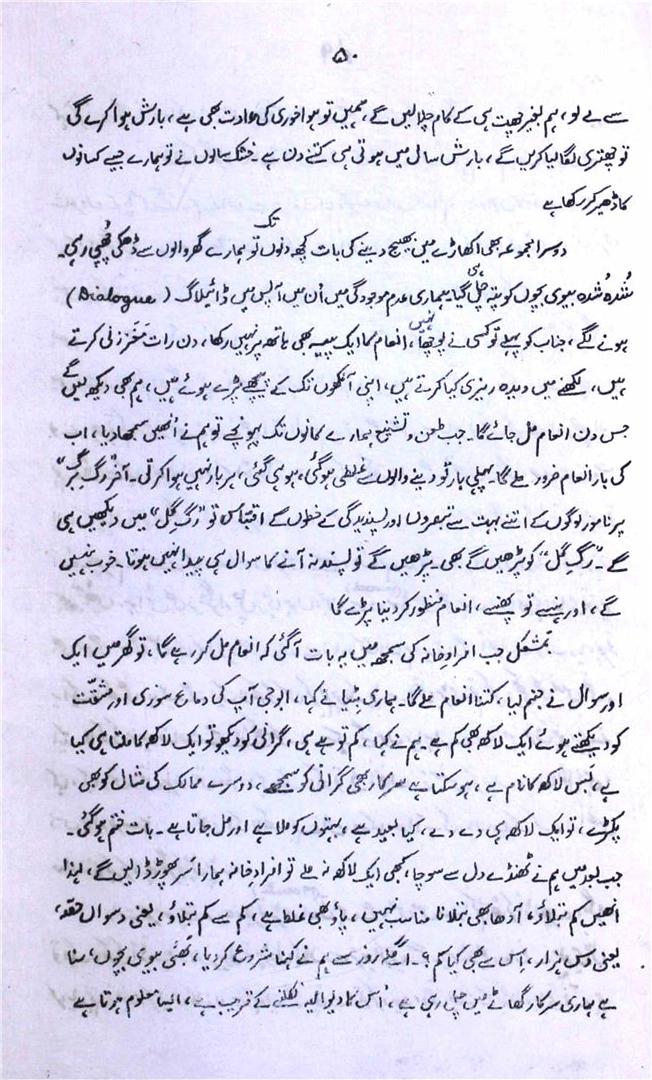 ۵۰
سے لے لو، ہم بغیر چھت ہی کے کام چلا لیں گے، ہمیں تو ہوا خوری کی عادت بھی ہے، بارش ہوا کرے گی
تو چھتری لگا لیا کریں گے، بارش سال میں ہوتی ہی کتنے دن ہے۔ خشک سالوں نے تو ہمارے جیسے کسانوں
کا ڈھیر کر رکھا ہے
دوسرا مجموعہ بھی اکھاڑے میں بھیج دینے کی بات کچھ دنوں تک تو ہمارے گھر والوں سے ڈھکی چھپی رہی۔
شدہ شدہ بیوی بچوں کو پتہ چل ہی گیا۔ ہماری عدم موجودگی میں اُن میں آپس میں ڈائیلاگ (Dialogue)
ہونے لگے، جناب کو پہلے تو کسی نے پوچھا نہیں، انعام کا ایک پیسہ بھی ہاتھ پر نہیں رکھا، دن رات مَغَز زنی کرتے
ہیں، لکھنے میں دیدہ ریزی کیا کرتے ہیں، اپنی آنکھوں تک کے پیچھے پڑے ہوئے ہیں، ہم بھی دیکھ لیں گے
جس دن انعام مل جائے گا۔ جب طعن و تشنیع ہمارے کانوں تک پہونچے تو ہم نے اُنھیں سمجھا دیا، اب
کی بار انعام ضرور ملے گا۔ پہلی بار تو دینے والوں سے غلطی ہو گئی، ہو ہی گئی، ہر بار نہیں ہوا کرتی۔ آخر "رگِ برگ"
پر نامور لوگوں کے اتنے بہت سے تبصروں اور پسندیدگی کے خطوں کے اقتباس تو "رگِ گل" میں دیکھیں ہی
گے۔ "رگِ گل" کو پڑھیں گے بھی۔ پڑھیں گے تو پسند نہ آنے کا سوال ہی پیدا نہیں ہوتا۔ خوب ہنسیں
گے، اور ہنسے تو پھنسے، انعام منظور کر دینا پڑے گا
بمشکل جب افرادِ خانہ کی سمجھ میں یہ بات آ گئی کہ انعام مل کر رہے گا، تو گھر میں ایک
اور سوال نے جنم لیا، کتنا انعام ملے گا۔ ہماری بٹیا نے کہا، ابو جی آپ کی دماغ سوزی اور مشقت
کو دیکھتے ہوئے ایک لاکھ بھی کم ہے۔ ہم نے کہا، کم تو ہے ہی، گرانی کو دیکھو تو ایک لاکھ کا ملتا ہی کیا
ہے، بس لاکھ کا نام ہے، ہو سکتا ہے سرکار بھی گرانی کو سمجھے، دوسرے ممالک کی مثال کو بھی
پکڑے، تو ایک لاکھ ہی دے دے، کیا بعید ہے، بہتوں کو ملا ہے اور مل جاتا ہے۔ بات ختم ہو گئی۔
جب بعد میں ہم نے ٹھنڈے دل سے سوچا، کبھی ایک لاکھ نہ ملے تو افرادِ خانہ ہمارا سَر پھوڑ ڈالیں گے، لہٰذا
انھیں کم بتلاؤ، آدھا بھی بتلانا مناسب نہیں، پاؤ بھی غلط ہے، کم سے کم بتلاؤ، یعنی دسواں حصّہ،
یعنی دس ہزار، اِس سے بھی کیا کم ؟۔ اگلے روز سے ہم نے کہنا شروع کر دیا، بھئی بیوی بچوں، سنا
ہے ہماری سرکار گھاٹے میں چل رہی ہے، اُس کا دیوالیہ نکلنے کے قریب ہے، ایسا معلوم ہوتا ہے